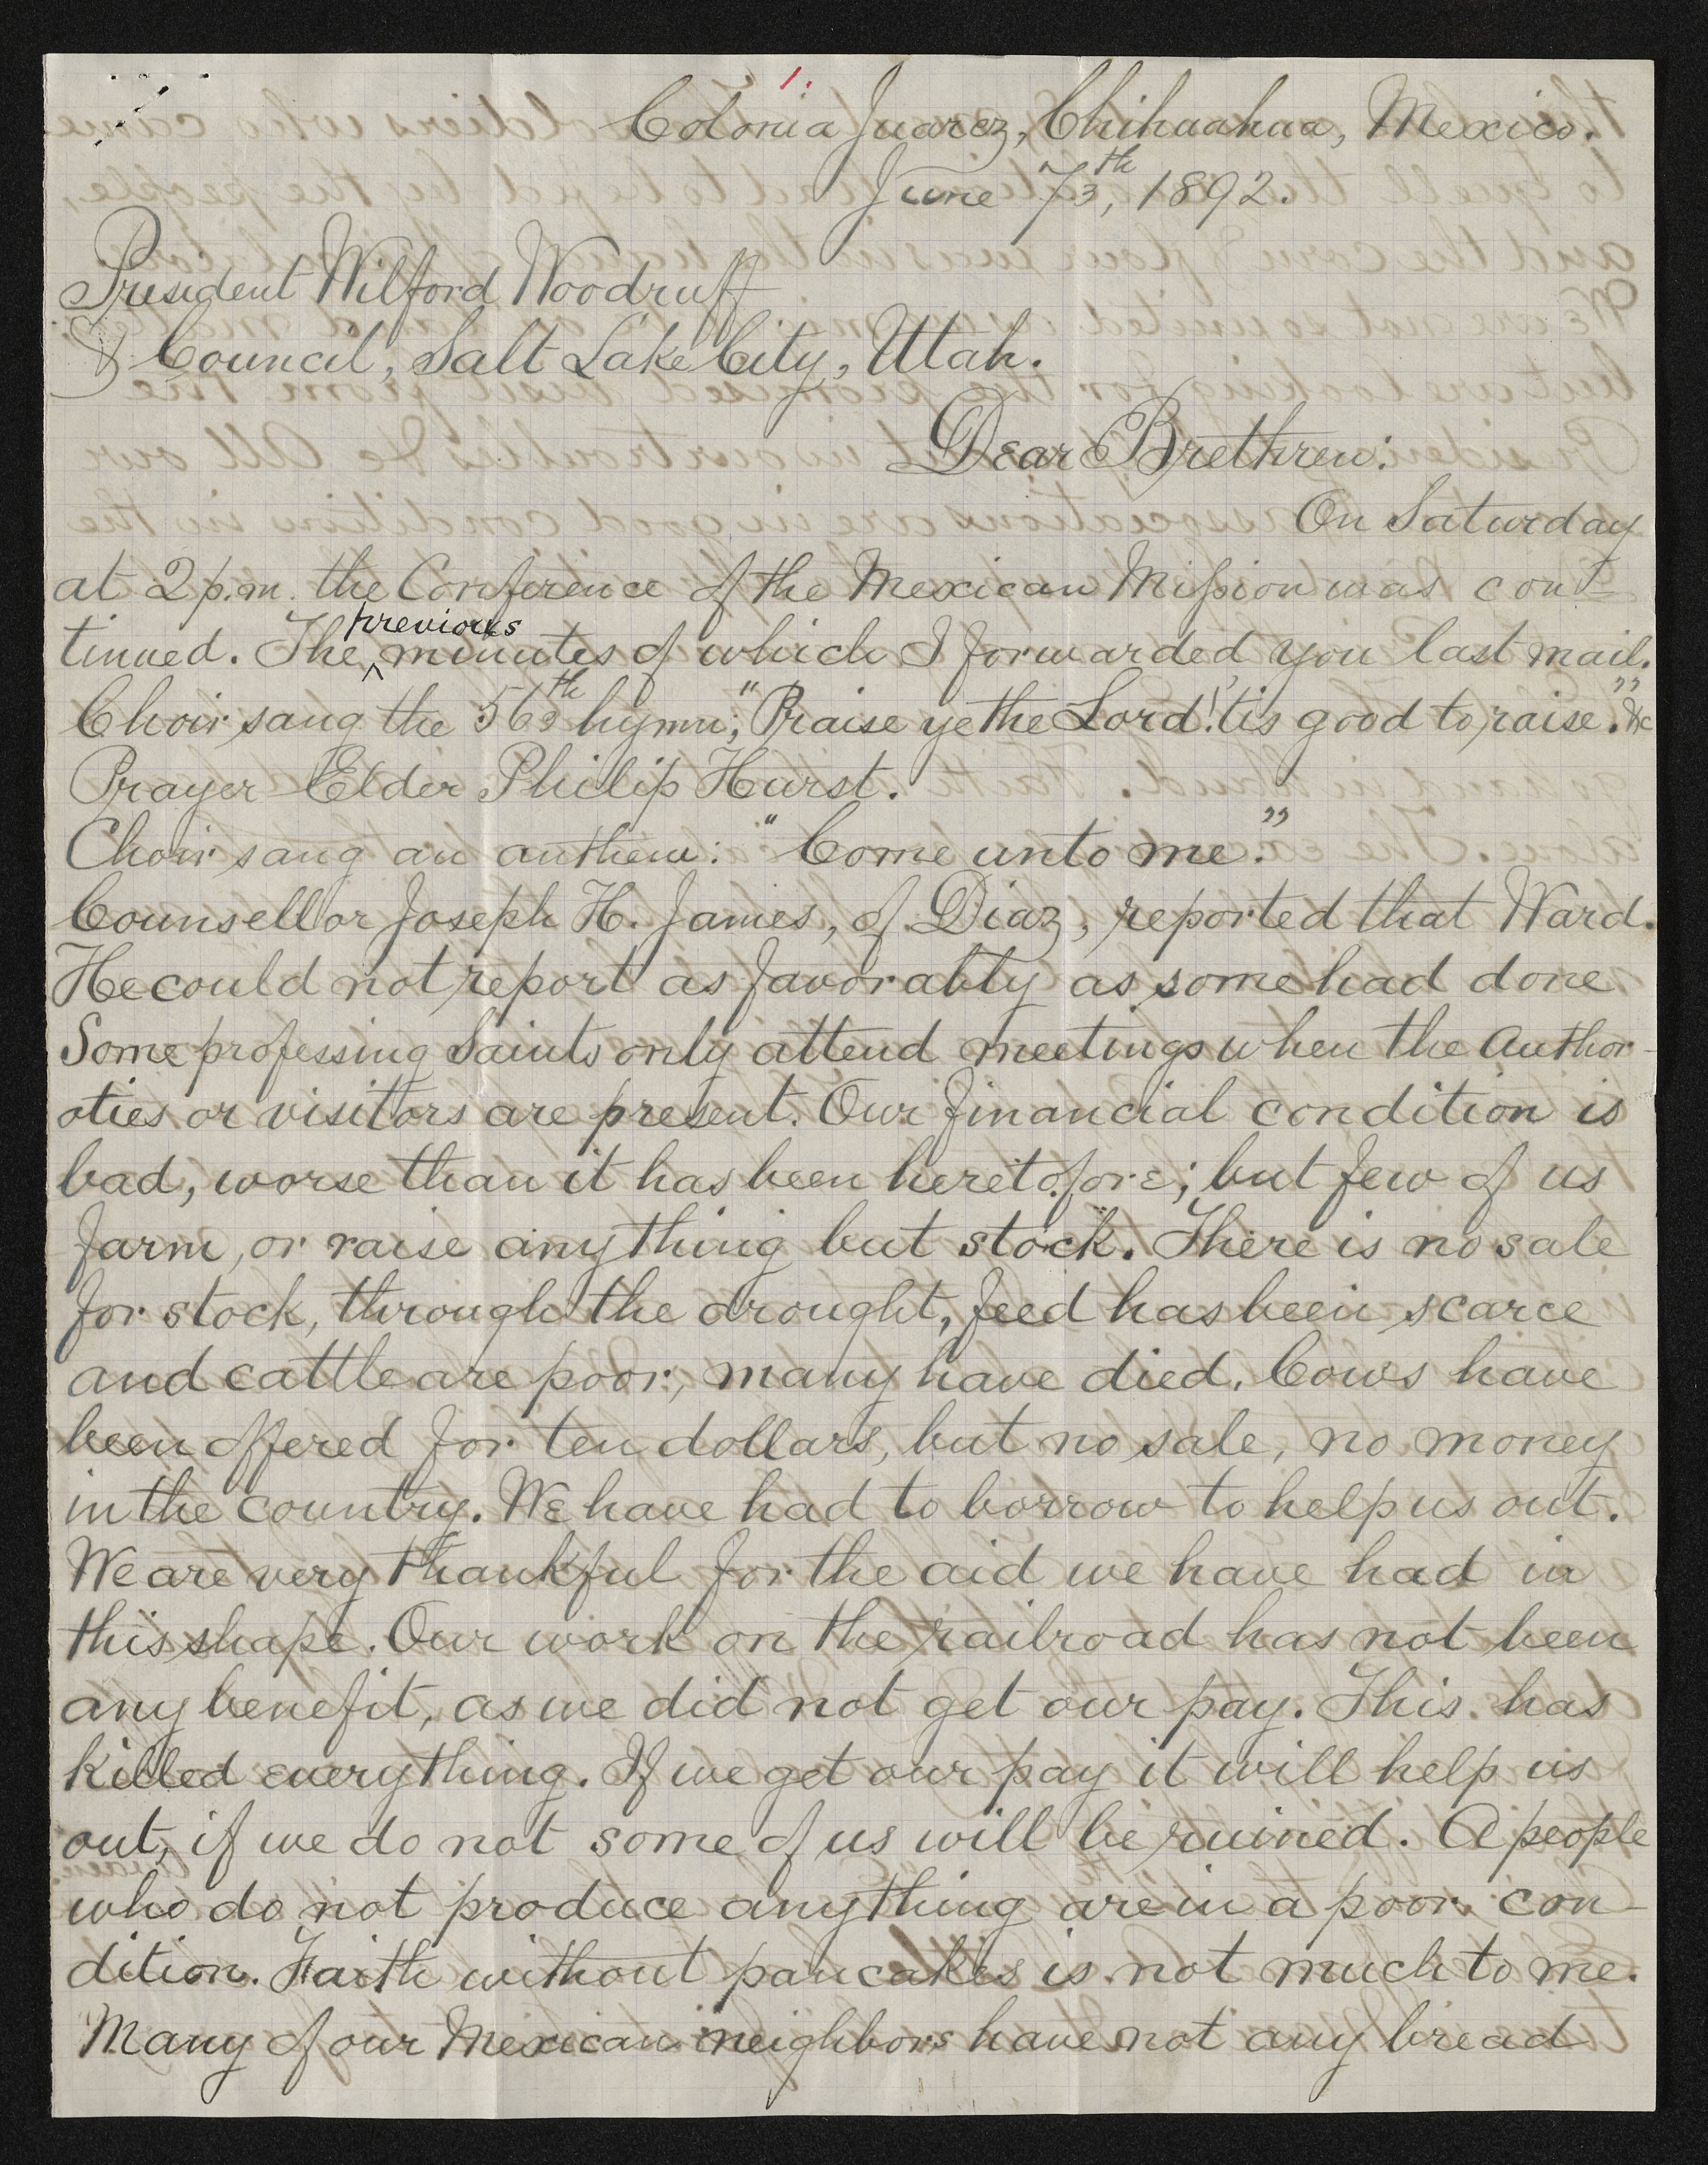 1.
Colonia Juarez, Chihuahua, Mexico.
June 7th, 1892.
President Wilford Woodruff
& Council, Salt Lake City, Utah.
Dear Brethren:
On Saturday
at 2 p.m. the Conference of the Mexican Mission was con-
tinued. The previous minutes of which I forwarded you last mail.
Choir sang the 56th hymn; "Praise ye the Lord! 'tis good to raise." &c
Prayer Elder Philip Hurst.
Choir sang an anthem: "Come unto me."
Counsellor Joseph H. James, of Diaz, reported that Ward.
He could not report as favorably as some had done
Some professing Saints only attend meetings when the Author-
oties or visitors are present. Our financial condition is
bad, worse than it has been heretofore; but few of us
farm, or raise anything but stock. There is no sale
for stock, through the drought, feed has been scarce
and cattle are poor, many have died. Cows have
been offered for ten dollars, but no sale, no money
in the country. We have had to borrow to help us out.
We are very thankful for the aid we have had in
this shape. Our work on the railroad has not been
any benefit, as we did not get our pay. This has
killed everything. If we get our pay it will help us
out, if we do not some of us will be ruined. A people
who do not produce anything are in a poor con-
dition. Faith without pancakes is not much to me.
Many of our Mexican neighbors have not any bread